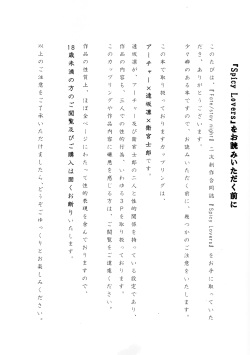 『Spicy Lovers』をお読みいただく前に
このたびは、『Fate/stay night』二次創作合同誌『Spicy Lovers』をお手に取っていた
だき、ありがとうございます。
少々癖のある本ですので、お読みいただく前に、幾つかのご注意をいたします。
この本で取り扱っておりますカップリングは、
アーチャー×遠坂凛×衛宮士郎です。
遠坂凛が、アーチャー及び衛宮士郎の二人と性的関係を持っている設定であり、
作品の内容も、三人での性的行為、いわゆる３Ｐを取り扱っております。
このカップリングや作品内容に嫌悪を感じる方は、ご閲覧をご遠慮ください。
作品の性質上、ほぼ全ページにわたって性的表現を含んでおりますので、
18歳未満の方のご閲覧及びご購入は固くお断りいたします。
以上のご注意をご了承いただけましたら、どうぞごゆっくりとお楽しみください。